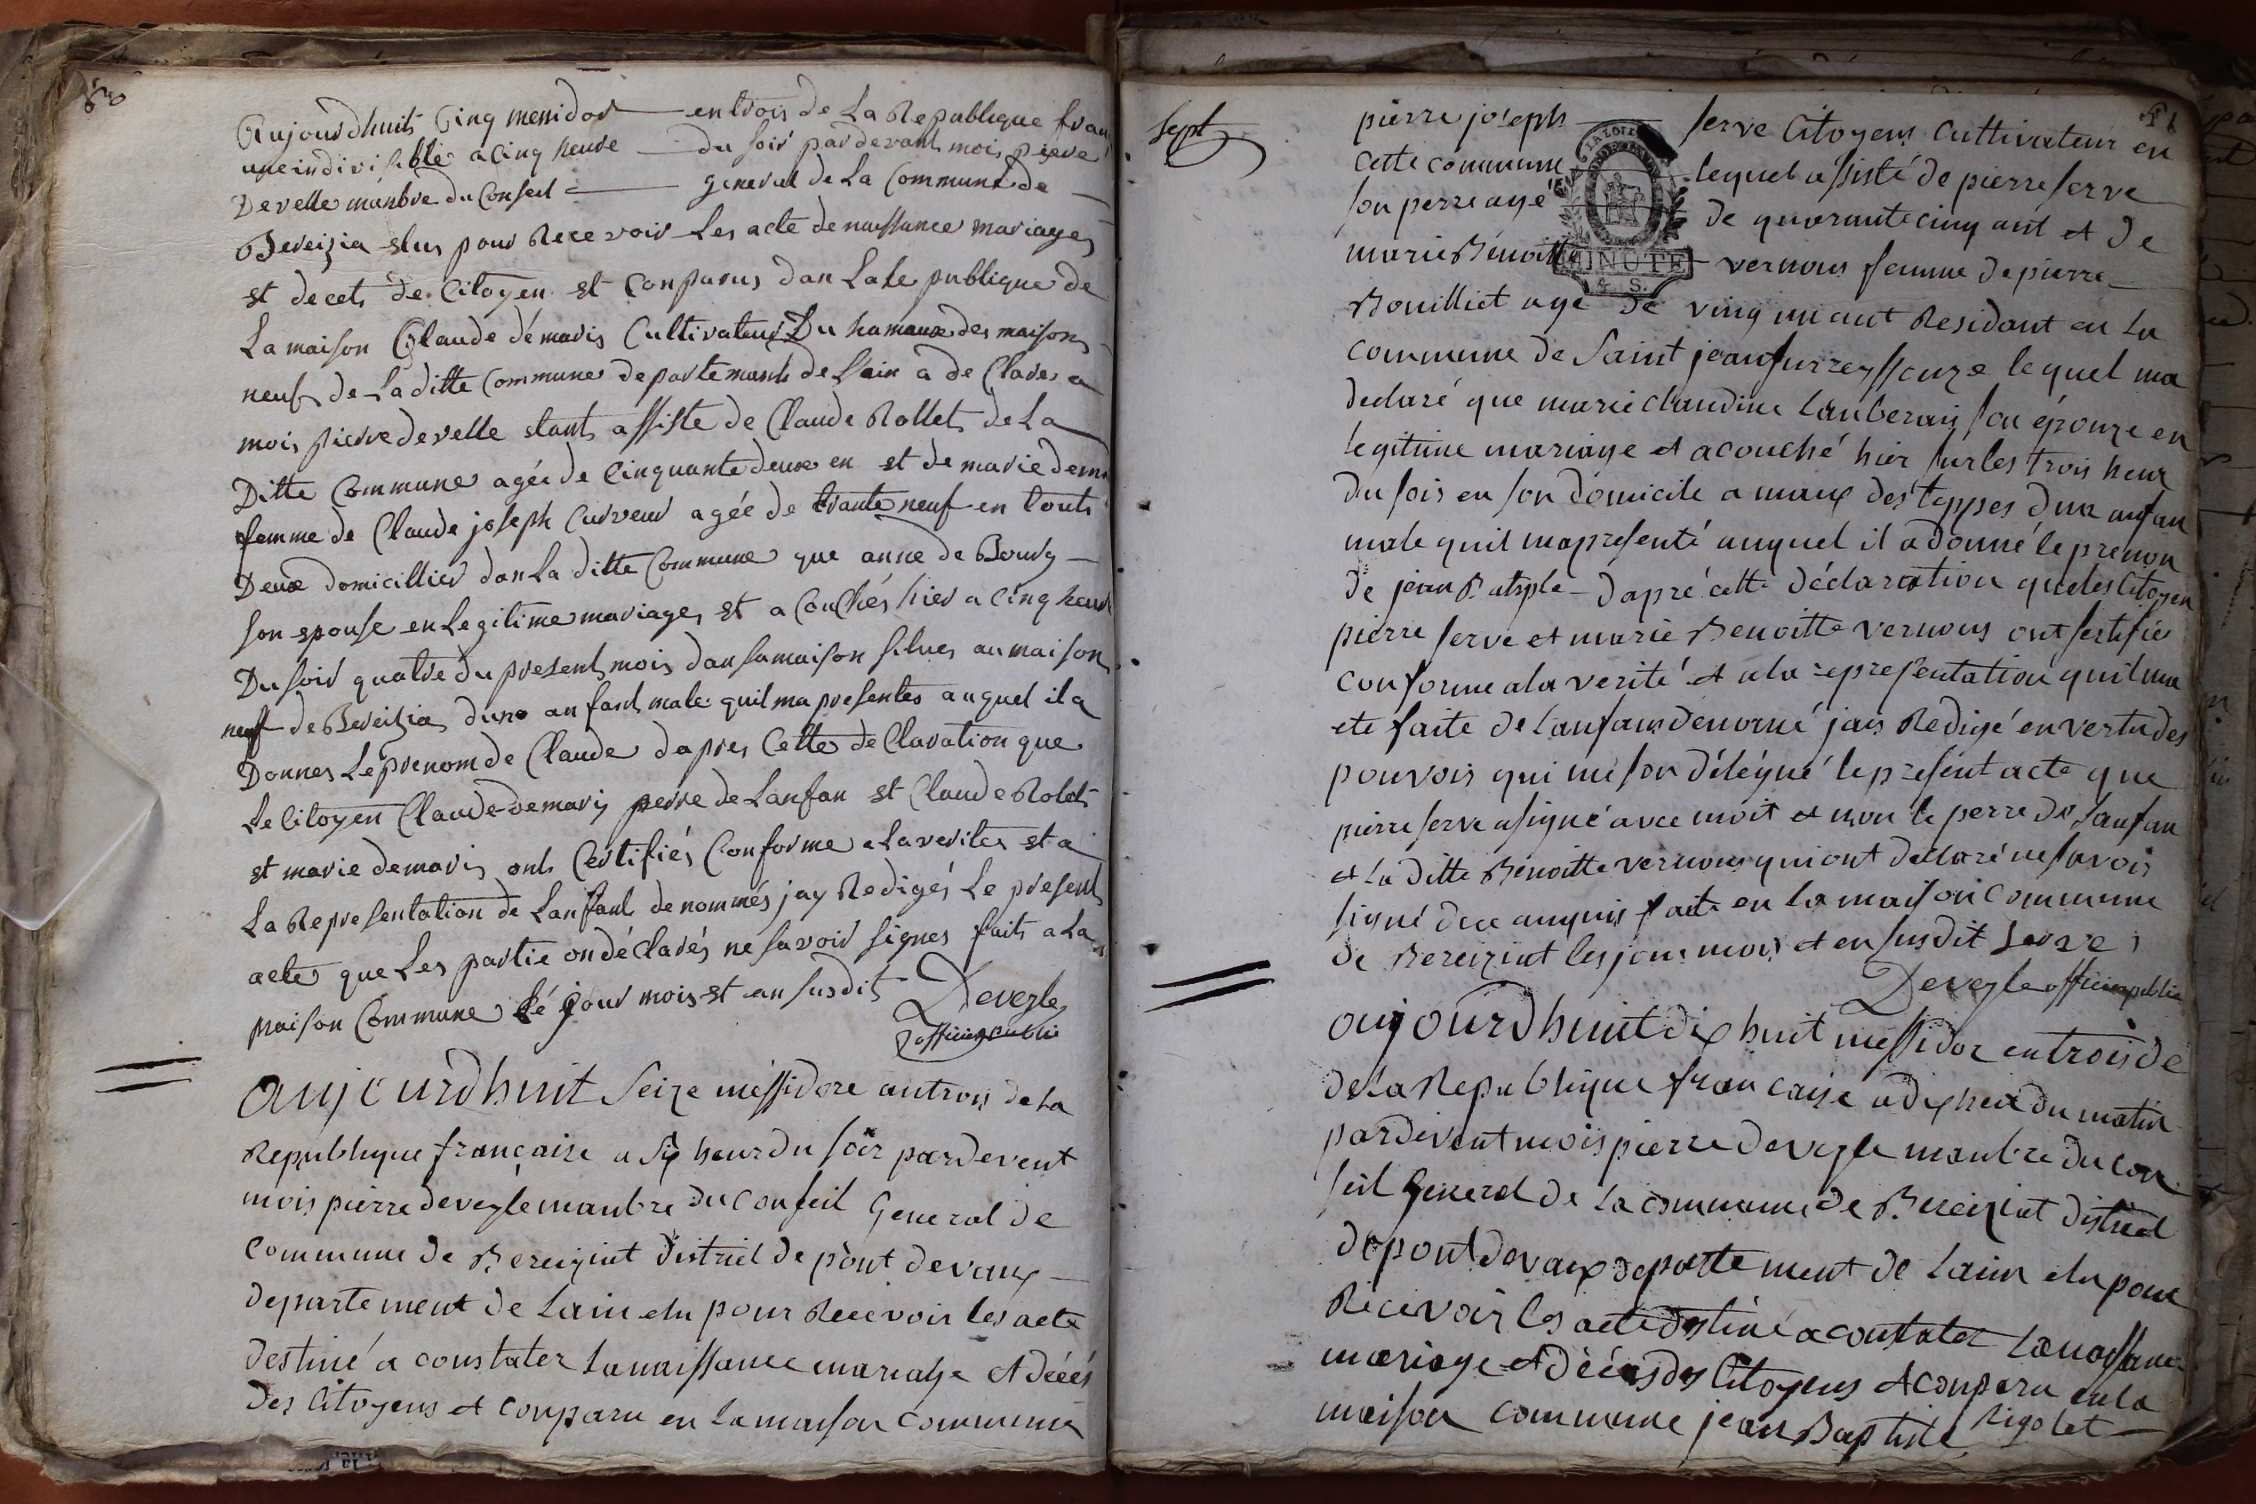 Aujourdhuits Cinq mesidor entrois de La Republique fran
une indivisible a Cinq heure du soir pardevant mois piere
Develle manbre du Conseil general de La Commune de
Bereizia elus pour Recevoir Les acte de naissance mariages
et decets de Citoyen et Conparus dan Lale publique de
La maison Claude démaris Cultivateur Du hamaux des maisons
neuf de Laditte Commune departemant de Lain a de Clares a
mois pierre develle etant assiste de Claude Rollet de La
Ditte Commune agée de Cinquante deux en et de marie dema
femme de Claude joseph Curveur agée de trante neuf en touts
Deux domicillier dan La ditte Commune que anne de Bourg
son epouse en Legitime mariages et a Couchés hier a Cinq heure
Du soir quatre du present mois dan sa maison situes au maison
neuf de Bereizia dune anfant male quil ma presentes auquel il a
Donnes Le prenom de Claude dapres Cette de Claration que
Le Citoyen Claude Demaris perre de Lanfan et Claude Rolet
et marie demaris onts Certifiés Conforme a La verites et a
La Representation de Lanfant denommés jay Redigés Le present
actes que Les partie on déclarés ne savoir signes faits a La
maison Commune Lé jour mois et an susdit Deveyle
officier public
aujourdhuit seize messidore antrois de La
Republique française a six heur du soir pardevent
mois pierre deveyle manbre du conseil General de
Commune de Bereiziat district de pont devaux
departement de Lain elu pour Recevoir les acte
destiné a constater La naissance mariage et décés
Des Citoyens et conparu en La maison commune
Sept
pierre joseph serve Citoyens Cultivateur en
cette commune lequel assisté de pierre serve
son perre agé de quarante cinq ant et de
marie Benoitte vernous femme de pierre
Bouilliet agé de ving un ant Residant en La
commune de Saint jean sur reyssouze lequel ma
declaré que marie claudine Lauberais son épouze en
legitime mariage et acouché hier sur les trois heur
du sois en son domicile a maux des teppes dun anfan
male quil mapresenté auquel il a donné le prenon
de jean Batiple dapré cette déclaration que les Citoyen
pierre serve et marie Benoitte vernous ont sertifié
conforme ala verité et ala representation quil ma
ete faite de Lanfans denomé jais Redigé en vertu des
pouvois qui me son délégué le présent acte que
pierre serve a signé avec moit et non le perre de Lanfan
et La ditte Benoitte vernous qui ont declaré ne savois
signé dece anquis faite en La maison commune
de Bereiziat les jour mois et en susdit serve
Deveyle officier public
aujourdhuit dix huit messidor entrois de
de La Republique française a dix heur du matin
pardevent mois pierre deveyle manbre du con
seil General de La commune de Bereiziat district
de pont devaux departement de Lain elu pour
Recevoir les acte destiné a constater La naissance
mariage et décés des Citoyens et conparu en La
maison commune jean Baptiste Rigolet
LA LOI
MINUTE
4 S.